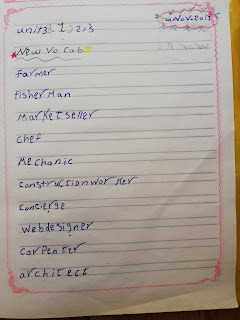 4 Nov. 2019
units 1, 2, 3
New Vocab
farmer
fisher Man
Market seller
chef
Mechanic
construction worker
concierge
web designer
carpenter
architect